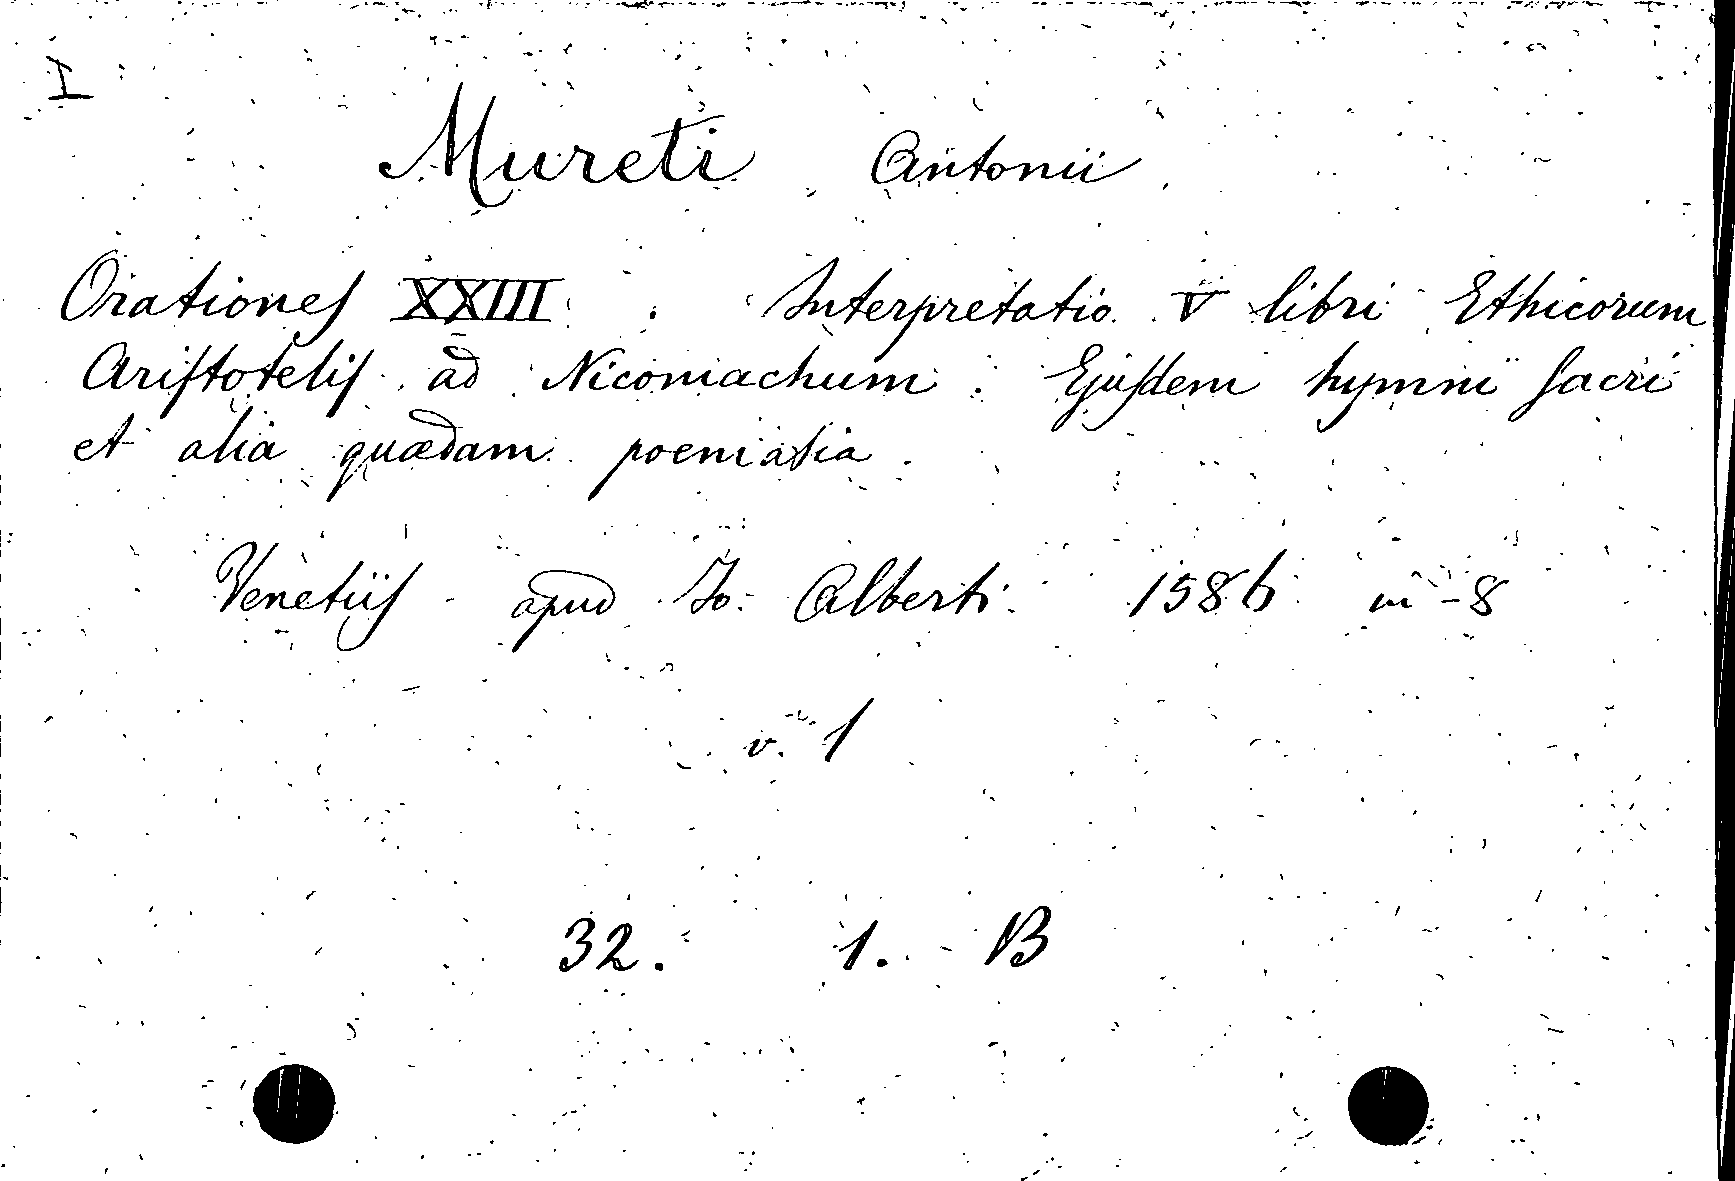 I
Mureti Antonii
Orationes XXIII. Interpretatio V libri Ethicorum
Aristotelis ad Nicomachum. Ejusdem hymni sacri
et alia quædam poematia.
Venetiis apud Jo. Alberti. 1586 in-8
v. 1
32. 1. B